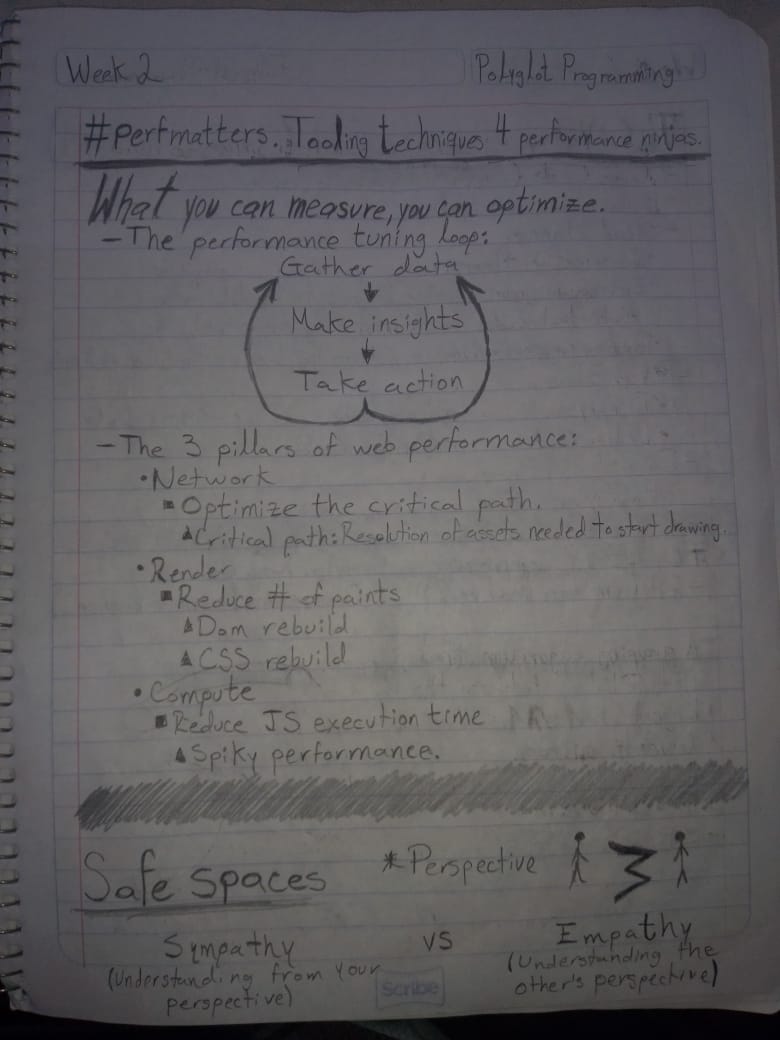 Week 2
Polyglot Programming
#perfmatters. Tooling techniques 4 performance ninjas.
What you can measure, you can optimize.
- The performance tuning loop:
Gather data
Make insights
Take action
- The 3 pillars of web performance:
• Network
▪ Optimize the critical path.
▲ Critical path: Resolution of assets needed to start drawing.
• Render
▪ Reduce # of paints
▲ Dom rebuild
▲ CSS rebuild
• Compute
▪ Reduce JS execution time
▲ Spiky performance.
Safe spaces
* Perspective
Sympathy
vs
Empathy
(Understanding from your
perspective)
(Understanding the
other's perspective)
Scribe